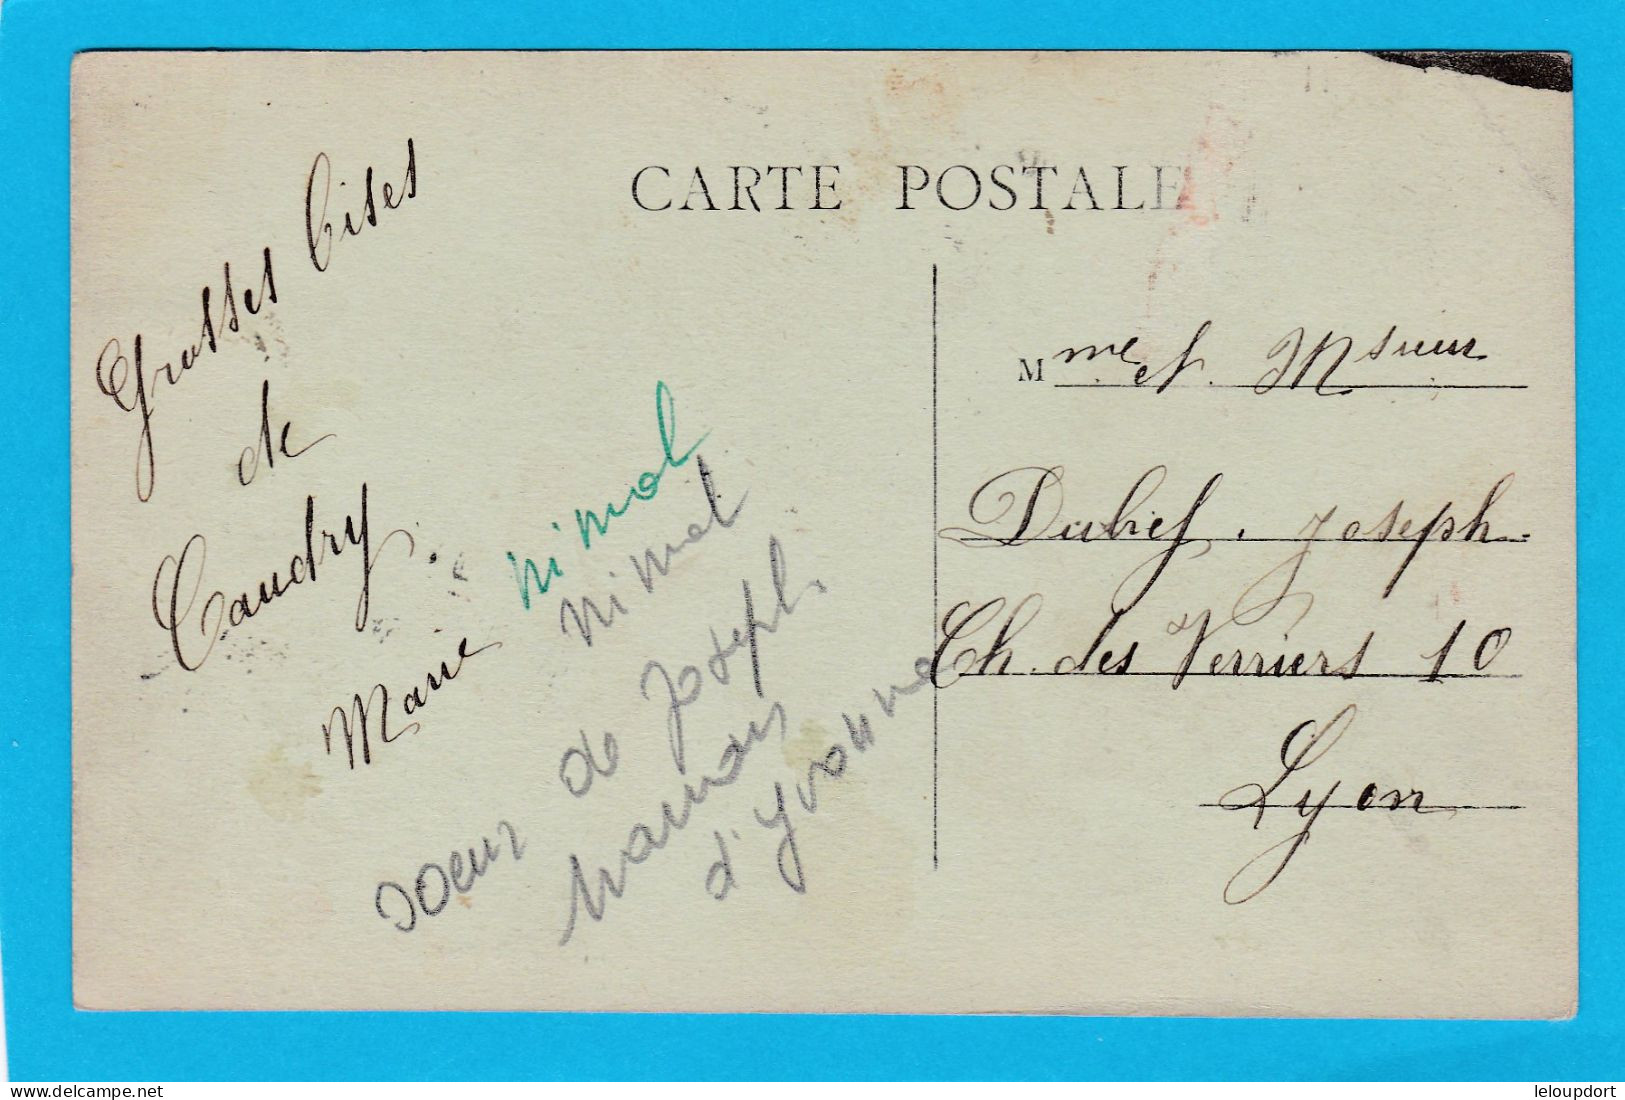 CARTE POSTALE
Grosses bises
de
Caudry.
Marie
nimol
nimol
soeur de Joseph
maman
d'Yvonne
M me et Msieur
Dubief. Joseph.
Ch. des Verriers 10
Lyon
leloupdort